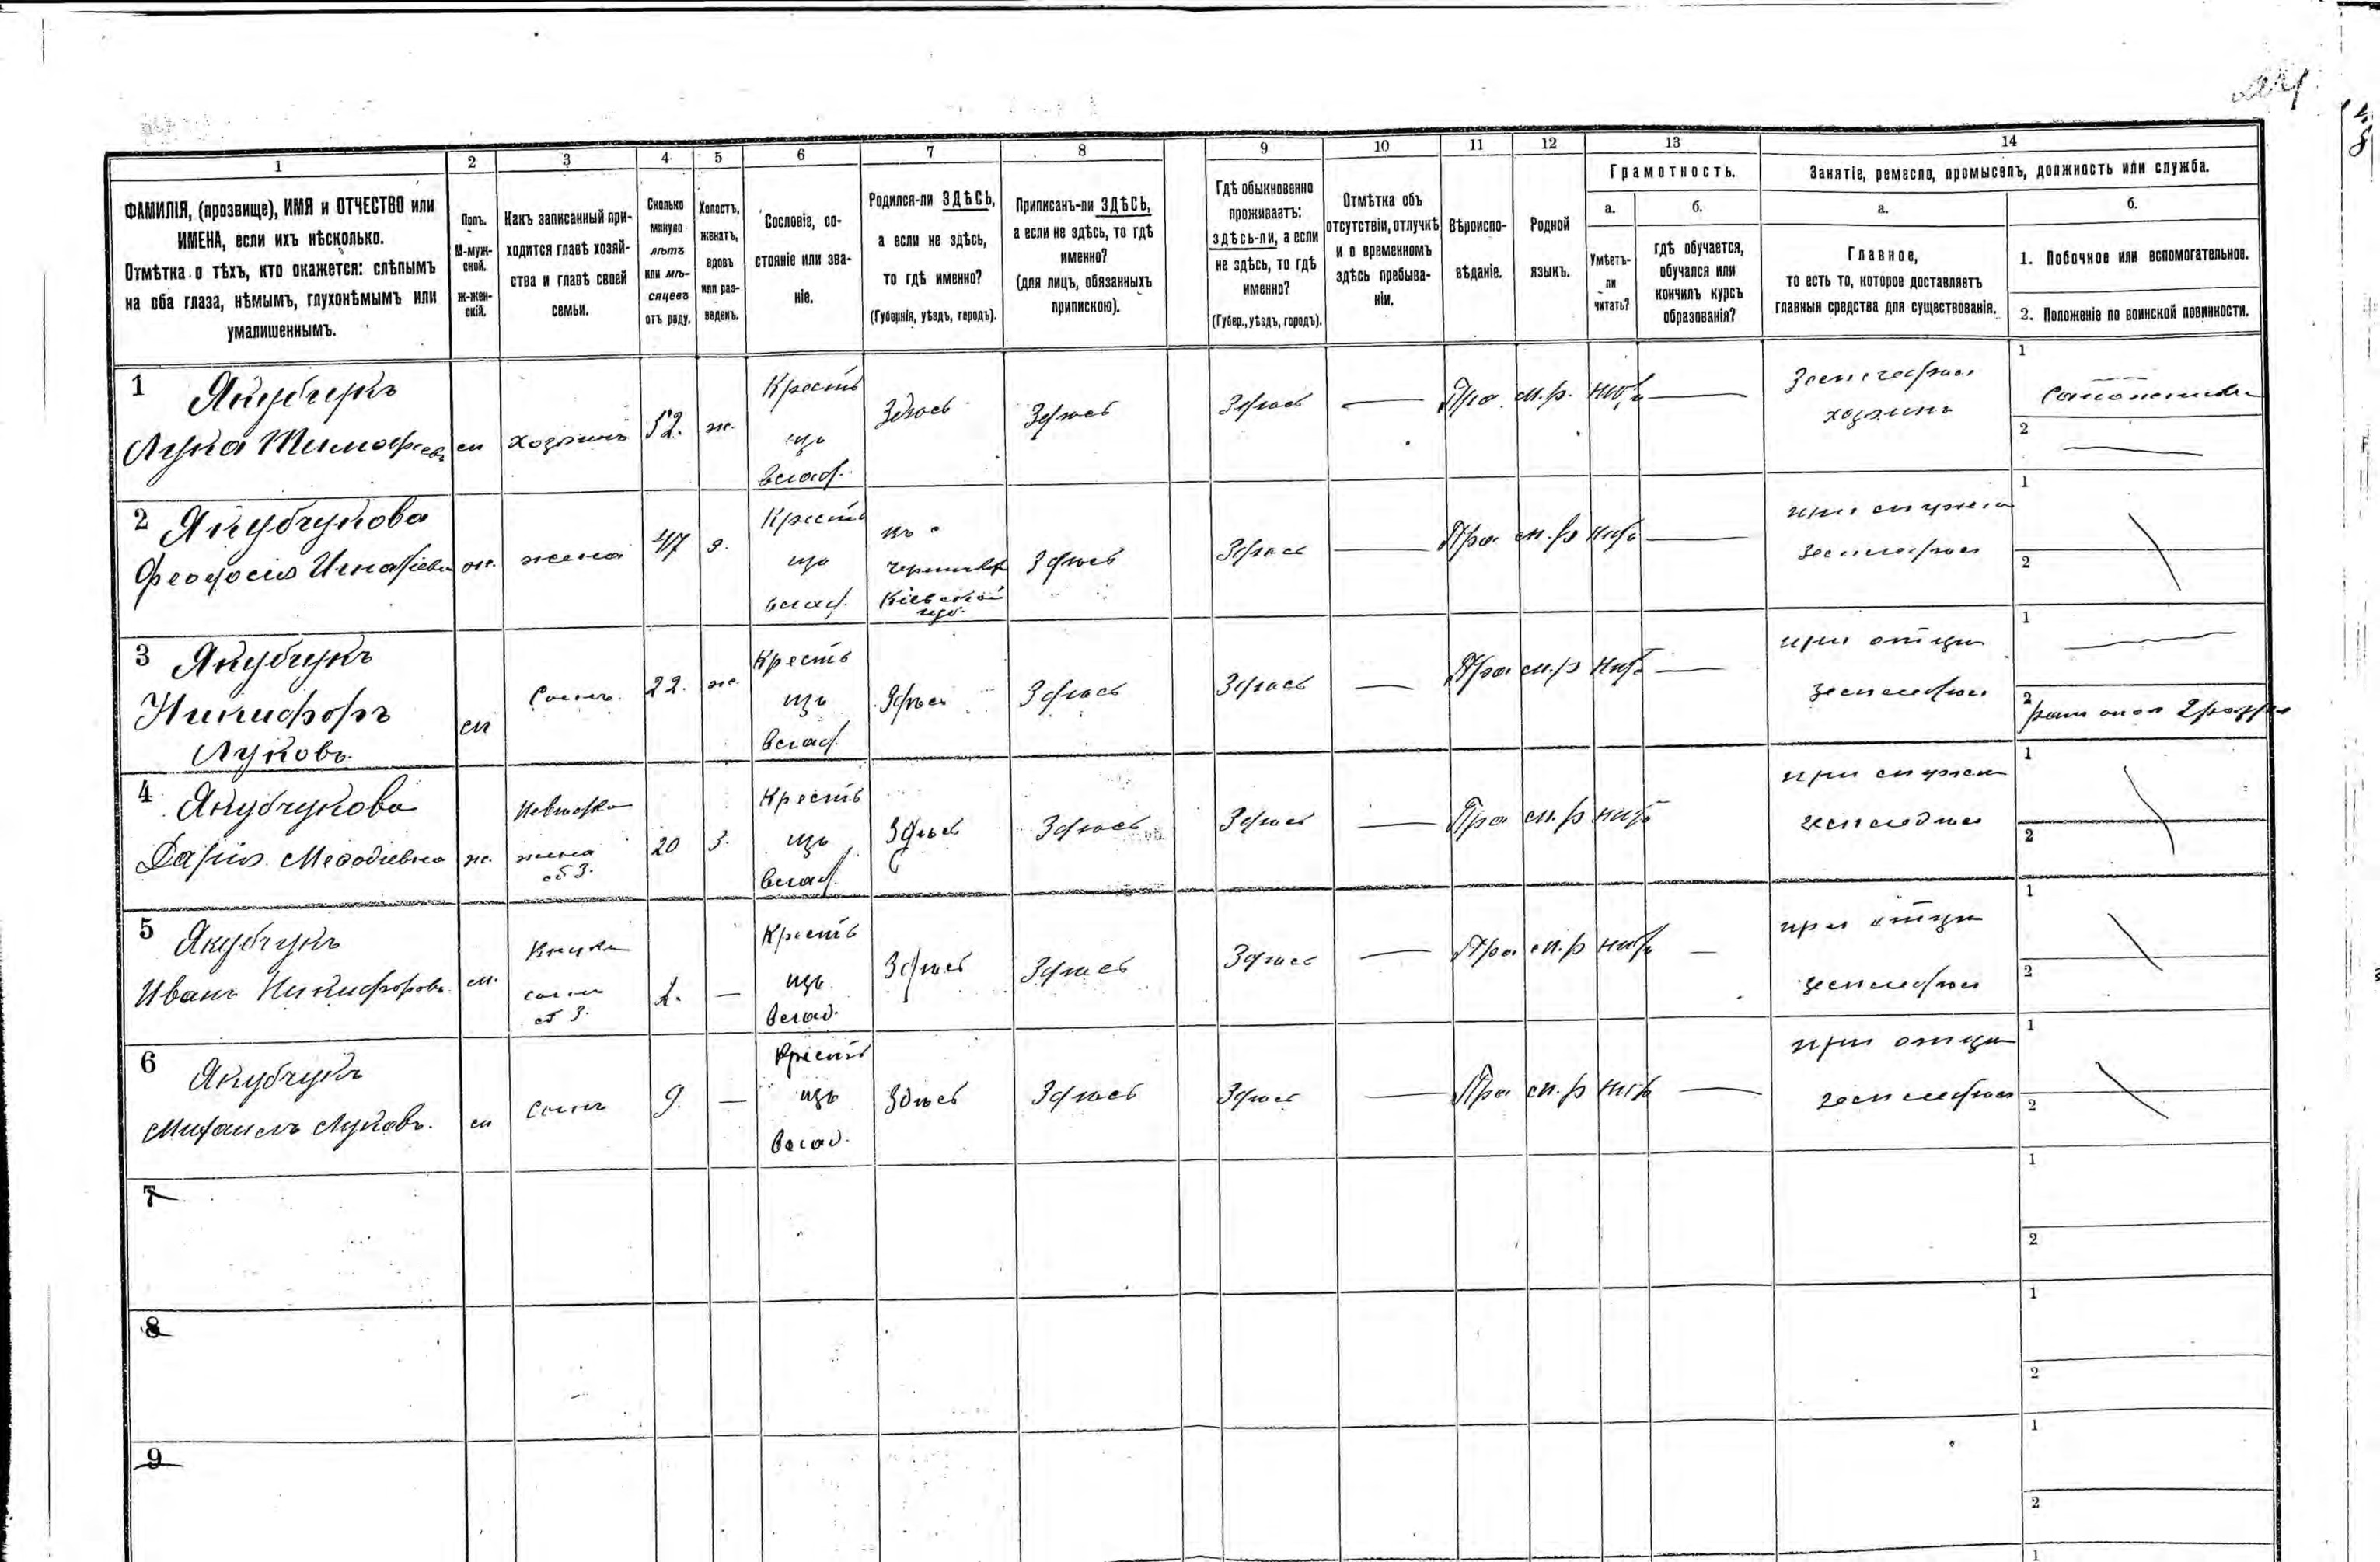 1 2 3 4 5 6 7 8 9 10 11 12 13 14
ФАМИЛІЯ, (прозвище), ИМЯ и ОТЧЕСТВО или
ИМЕНА, если ихъ нѣсколько.
Отмѣтка о тѣхъ, кто окажется: слѣпымъ
на оба глаза, нѣмымъ, глухонѣмымъ или
умалишеннымъ.
Полъ.
М-муж-
ской.
Ж-жен-
скій.
Какъ записанный при-
ходится главѣ хозяй-
ства и главѣ своей
семьи.
Сколько
минуло
лѣтъ
или мѣ-
сяцевъ
отъ роду.
Холостъ,
женатъ,
вдовъ
или раз-
веденъ.
Сословіе, со-
стояніе или зва-
ніе.
Родился-ли ЗДѢСЬ,
а если не здѣсь,
то гдѣ именно?
(Губернія, уѣздъ, городъ).
Приписанъ-ли ЗДѢСЬ,
а если не здѣсь, то гдѣ
именно?
(для лицъ, обязанныхъ
припискою).
Гдѣ обыкновенно
проживаетъ:
здѣсь-ли, а если
не здѣсь, то гдѣ
именно?
(Губер., уѣздъ, городъ).
Отмѣтка объ
отсутствіи, отлучкѣ
и о временномъ
здѣсь пребыва-
ніи.
Вѣроиспо-
вѣданіе.
Родной
языкъ.
Грамотность.
а.
Умѣетъ-
ли
читать?
б.
гдѣ обучается,
обучался или
кончилъ курсъ
образованія?
Занятіе, ремесло, промыселъ, должность или служба.
а.
Главное,
то есть то, которое доставляетъ
главныя средства для существованія.
б.
1. Побочное или вспомогательное.
2. Положеніе по воинской повинности.
1 Якубчукъ
Лука Тимофѣевъ
м
хозяинъ
52.
ж.
Кресть
изъ
влад.
Здѣсь
Здѣсь
Здѣсь
Пра.
м.р.
нѣтъ
земледѣл
хозяинъ
1
2
2 Якубчукова
Феодосія Игнатіева
ж.
жена
47
з.
Кресть
изъ
влад.
изъ
Кіевской
губ.
Здѣсь
Здѣсь
Пра
м.р
нѣтъ
при мужѣ
земледѣл
1
2
3 Якубчукъ
Никифоръ
Луковъ.
м
Сынъ.
22.
ж.
Кресть
изъ
влад.
Здѣсь
Здѣсь
Здѣсь
Пра
м.р
нѣтъ
при отцѣ
земледѣл
1
2
4 Якубчукова
Дарія Меѳодіевна
ж.
Невѣстка
жена
об 3.
20
з.
Кресть
изъ
влад.
Здѣсь
Здѣсь
Здѣсь
Пра
м.р
нѣтъ
при мужѣ
земледѣл
1
2
5 Якубчукъ
Иванъ Никифоровъ
м.
Внукъ
сынъ
об 3.
—
Кресть
изъ
влад.
Здѣсь
Здѣсь
Здѣсь
Пра
м.р
нѣтъ
при отцѣ
земледѣл
1
2
6 Якубчукъ
Михаилъ Луковъ.
м
сынъ
9.
—
Кресть
изъ
влад.
Здѣсь
Здѣсь
Здѣсь
Пра
м.р
нѣтъ
при отцѣ
земледѣл
1
2
7
1
2
8
1
2
9
1
2
1